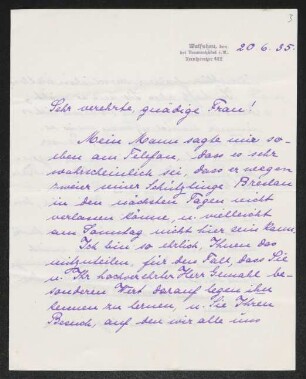 3
Wolfshau, den
20 6. 35.
Sehr verehrte, gnädige Frau!
Mein Mann sagte mir so-
eben am Telefon, dass es sehr
wahrscheinlich sei, dass er wegen
zweier seiner Schützlinge Breslau
in den nächsten Tagen nicht
verlassen könne, u. vielleicht
am Sonntag nicht hier sein kann.
Ich bin so ehrlich, Ihnen das
mitzuteilen, für den Fall, dass Sie
u. Ihr hochverehrter Herr Gemahl be-
sonderen Wert darauf legen ihn
kennen zu lernen, u. Sie Ihren
Besuch, auf den wir alle uns